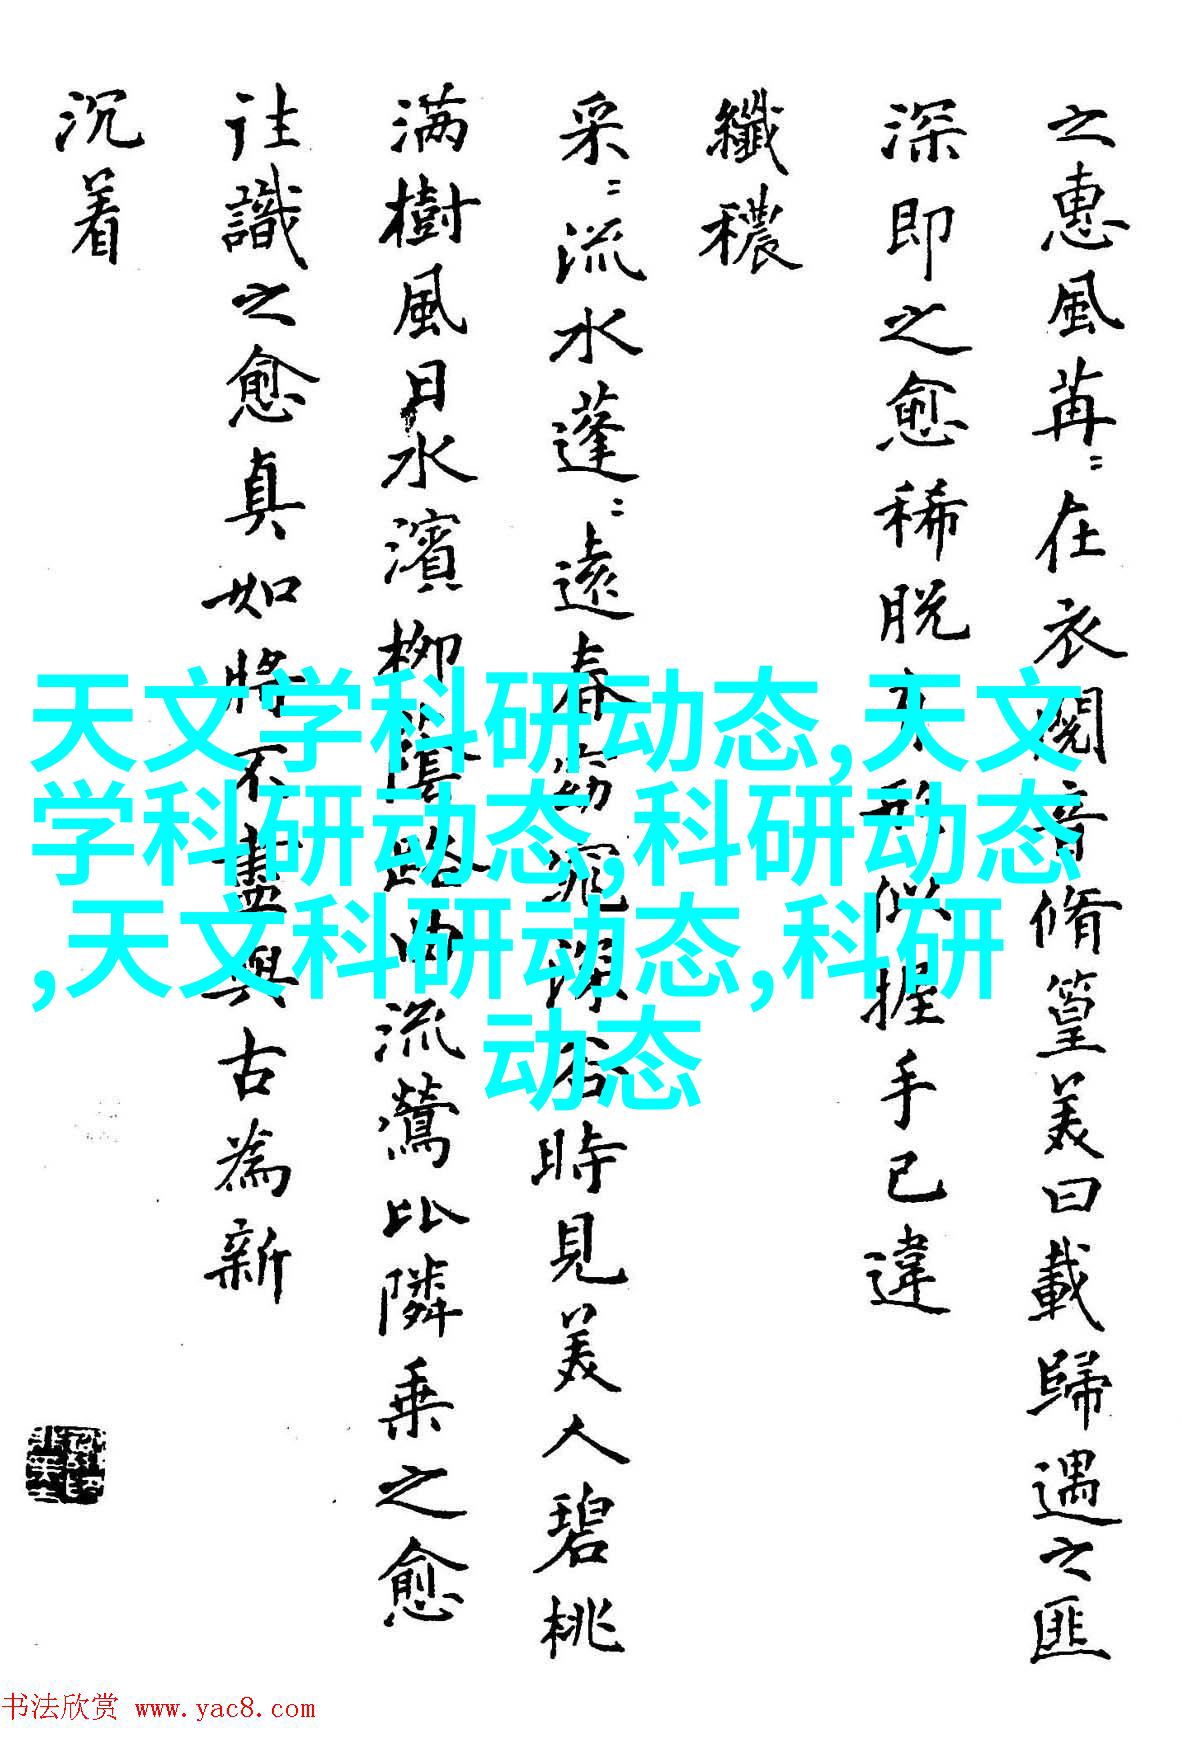 之惠風苒〻在衣閱音脩篁美曰載歸遇之匪
深即之愈稀脱有形似握手已違
纖穠
采〻流水蓬〻遠春窈窕深谷時見美人碧桃
滿樹風日水濱柳蔭路曲流鶯比隣乗之愈
往識之愈真如將不盡與古為新
沉着
天文学科研动态,天文
学科研动态,科研动态
,天文科研动态,科研
动态
书法欣赏 www.yac8.com